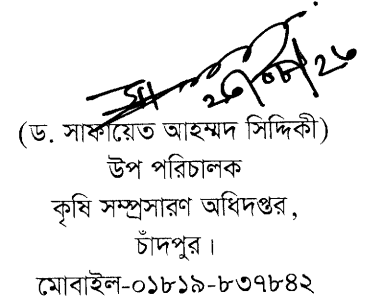 (ড. সাফায়েত আহম্মদ সিদ্দিকী)
উপ পরিচালক
কৃষি সম্প্রসারণ অধিদপ্তর,
চাঁদপুর।
মোবাইল-০১৮১৯-৮৩৭৮৪২